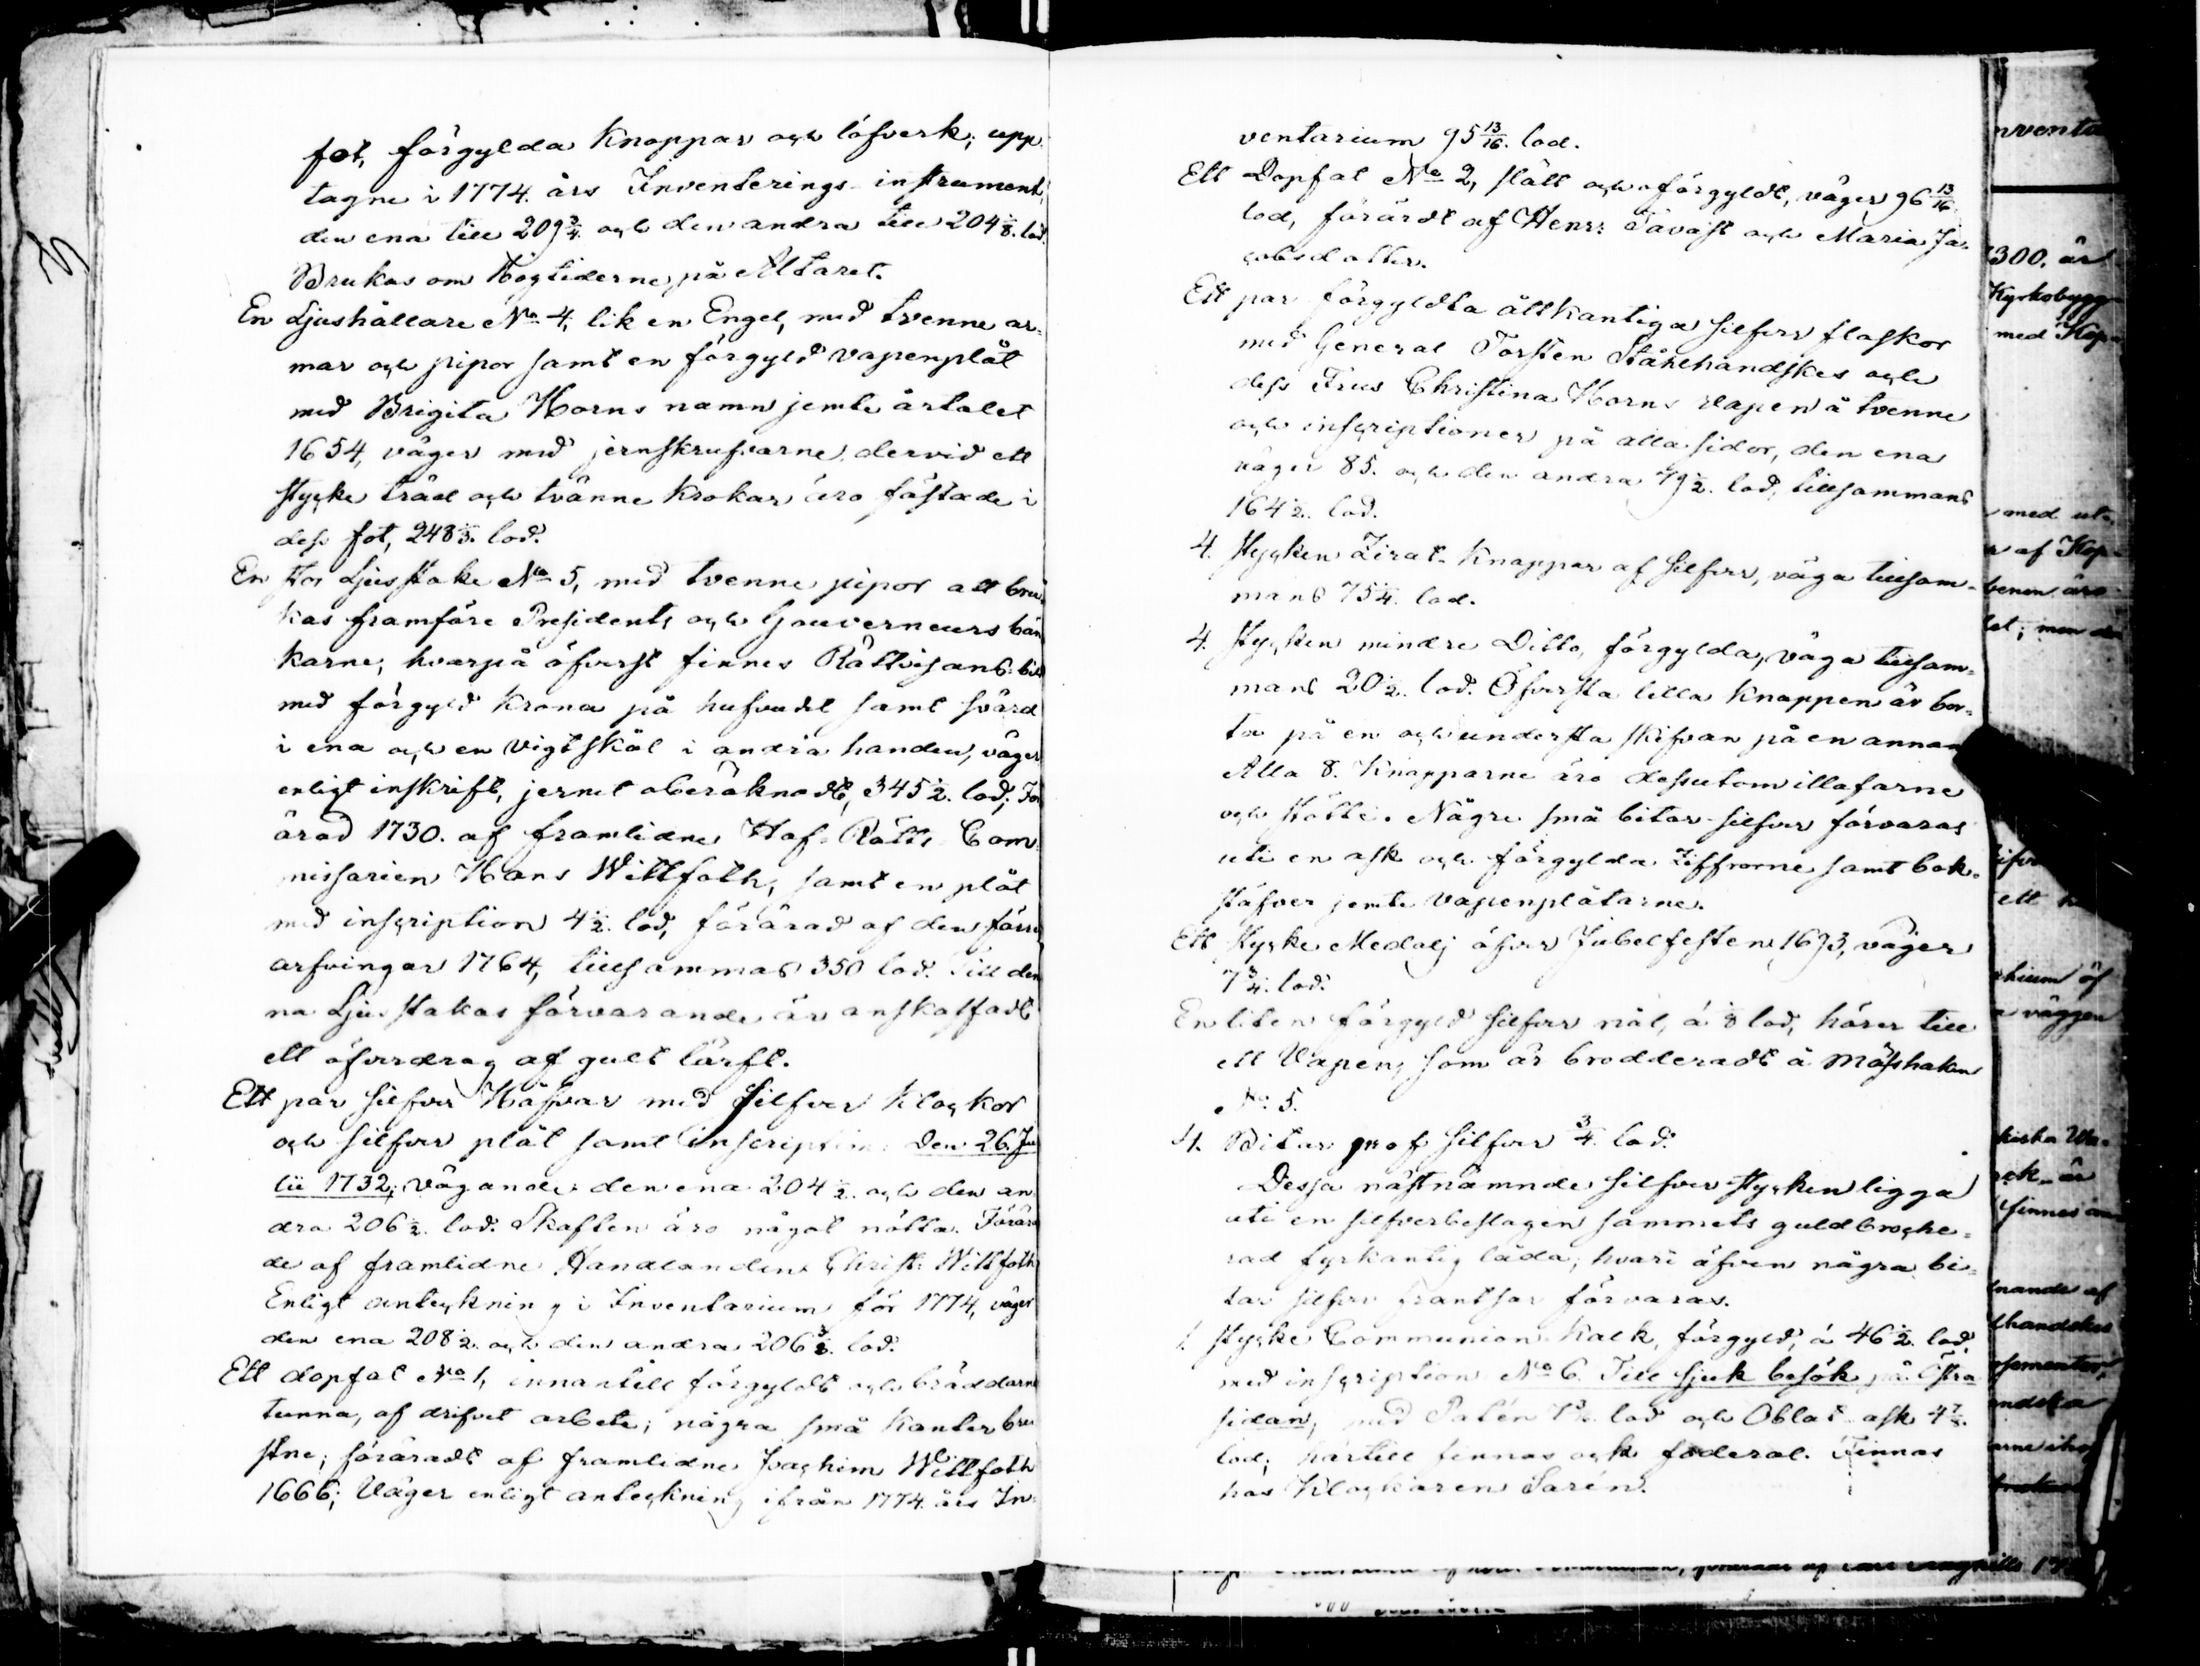 fot, förgylda Knoppar och löfverk, upp-
tagne i 1774. års Inventerings-instrument,
den ena till 209 3/4. och den andra till 204 1/8. lod.
Brukas om Högtiderne på Altaret.
En Ljushållare No 4, lik en Engel, med tvenne ar-
mar och pipor samt en förgyld vapenplåt
med Brigita Horns namn jemte årtalet
1654, väger med jernskrufvarne, dervid ett
stycke tråd och tvänne Krokar äro fästade i
dess fot, 248 1/3. lod.
En stor Ljusstake No 5, med tvenne pipor att bru-
kas framföre Presidents och Gouverneurs bän
karne, hvarpå öfverst finnes Rättvisans bild
med förgyld Krona på hufvudet samt svärd
i ena och en vigtskål i andra handen, väger
enligt inskrift, jernet oberäknadt, 345 1/2. lod, För
ärad 1730. af framlidne Hof-Rätts Com
missarien Hans Wittfoth, samt en plåt
med inscription 4 1/2. lod, förärad af den förres
arfvingar 1764, tillsammans 350 lod. Till den
na Ljusstakas förvarande är anskaffadt
ett öfverdrag af gult lärft.
Ett par Silfver Håfvar med Silfver Klockor
och silfver plåt samt inscription: Den 26. Ju
lii 1732, vägande den ena 204 1/2. och den an
dra 206 1/2. lod. Skaften äro något nötta. Förära
de af framlidne Handlanden Christ: Wittfoth
Enligt anteckning i Inventarium för 1774, väger
den ena 208 1/2. och den andra 206 3/8. lod.
Ett dopfat No 1, innantill förgyldt och bräddarne
tunna, af drifvet arbete; några små kanter bru
stne; föräradt af framlidne Joachim Wittfoth
1666; Väger enligt anteckning ifrån 1774. års In-
ventarium 95 13/16. lod.
Ett Dopfat No 2, slätt och oförgyldt, väger 96 13/16.
lod, förärdt af Henr: Tavast och Maria Ja-
cobsdotter.
Ett par förgyldta åttkantiga silfver flaskor
med General Torsten Stålhandskes och
dess Frus Christina Horns Vapen å tvenne
och inscriptioner på alla sidor, den ena
väger 85. och den andra 79 1/2. lod, tillsammans
164 1/2. lod.
4. Stycken Zirat-Knappar af Silfver, väga tillsam-
mans 75 1/4. lod.
4. Stycken mindre Ditto, förgylda, väga tillsam-
mans 20 1/2. lod. Öfversta lilla Knappen är bor-
ta på en och understa skifvan på en annan
Alla 8. Knapparne äro dessutom illafarne
och stötte. Någre små bitar silfver förvaras
uti en ask och förgylda Ziffrorne samt bok-
stäfver jemte vapenplåtarne.
Ett Stycke Medalj öfver Jubelfesten 1693, väger
7 3/4. lod.
En liten förgyld silfver nål, á 1/8 lod, hörer till
ett Vapen, som är brodderadt å Mässhaken
No. 5.
4. Bitar prof silfver 3/4. lod.
Dessa nästnämnde silfver-stycken ligga
uti en silfverbeslagen sammets guldbroche-
rad fyrkantig låda, hvari äfven några bi-
tar silfver frantsar förvaras.
1. Stycke Communion Kalk, förgyld, á 46 1/2. lod,
med inscription No 6. Till sjuk besök på Östra
sidan, med Patén lod och Oblat-ask 4 7/8.
lod, härtill finnas ock foderal. Finnas
hos Klockaren Sarén.